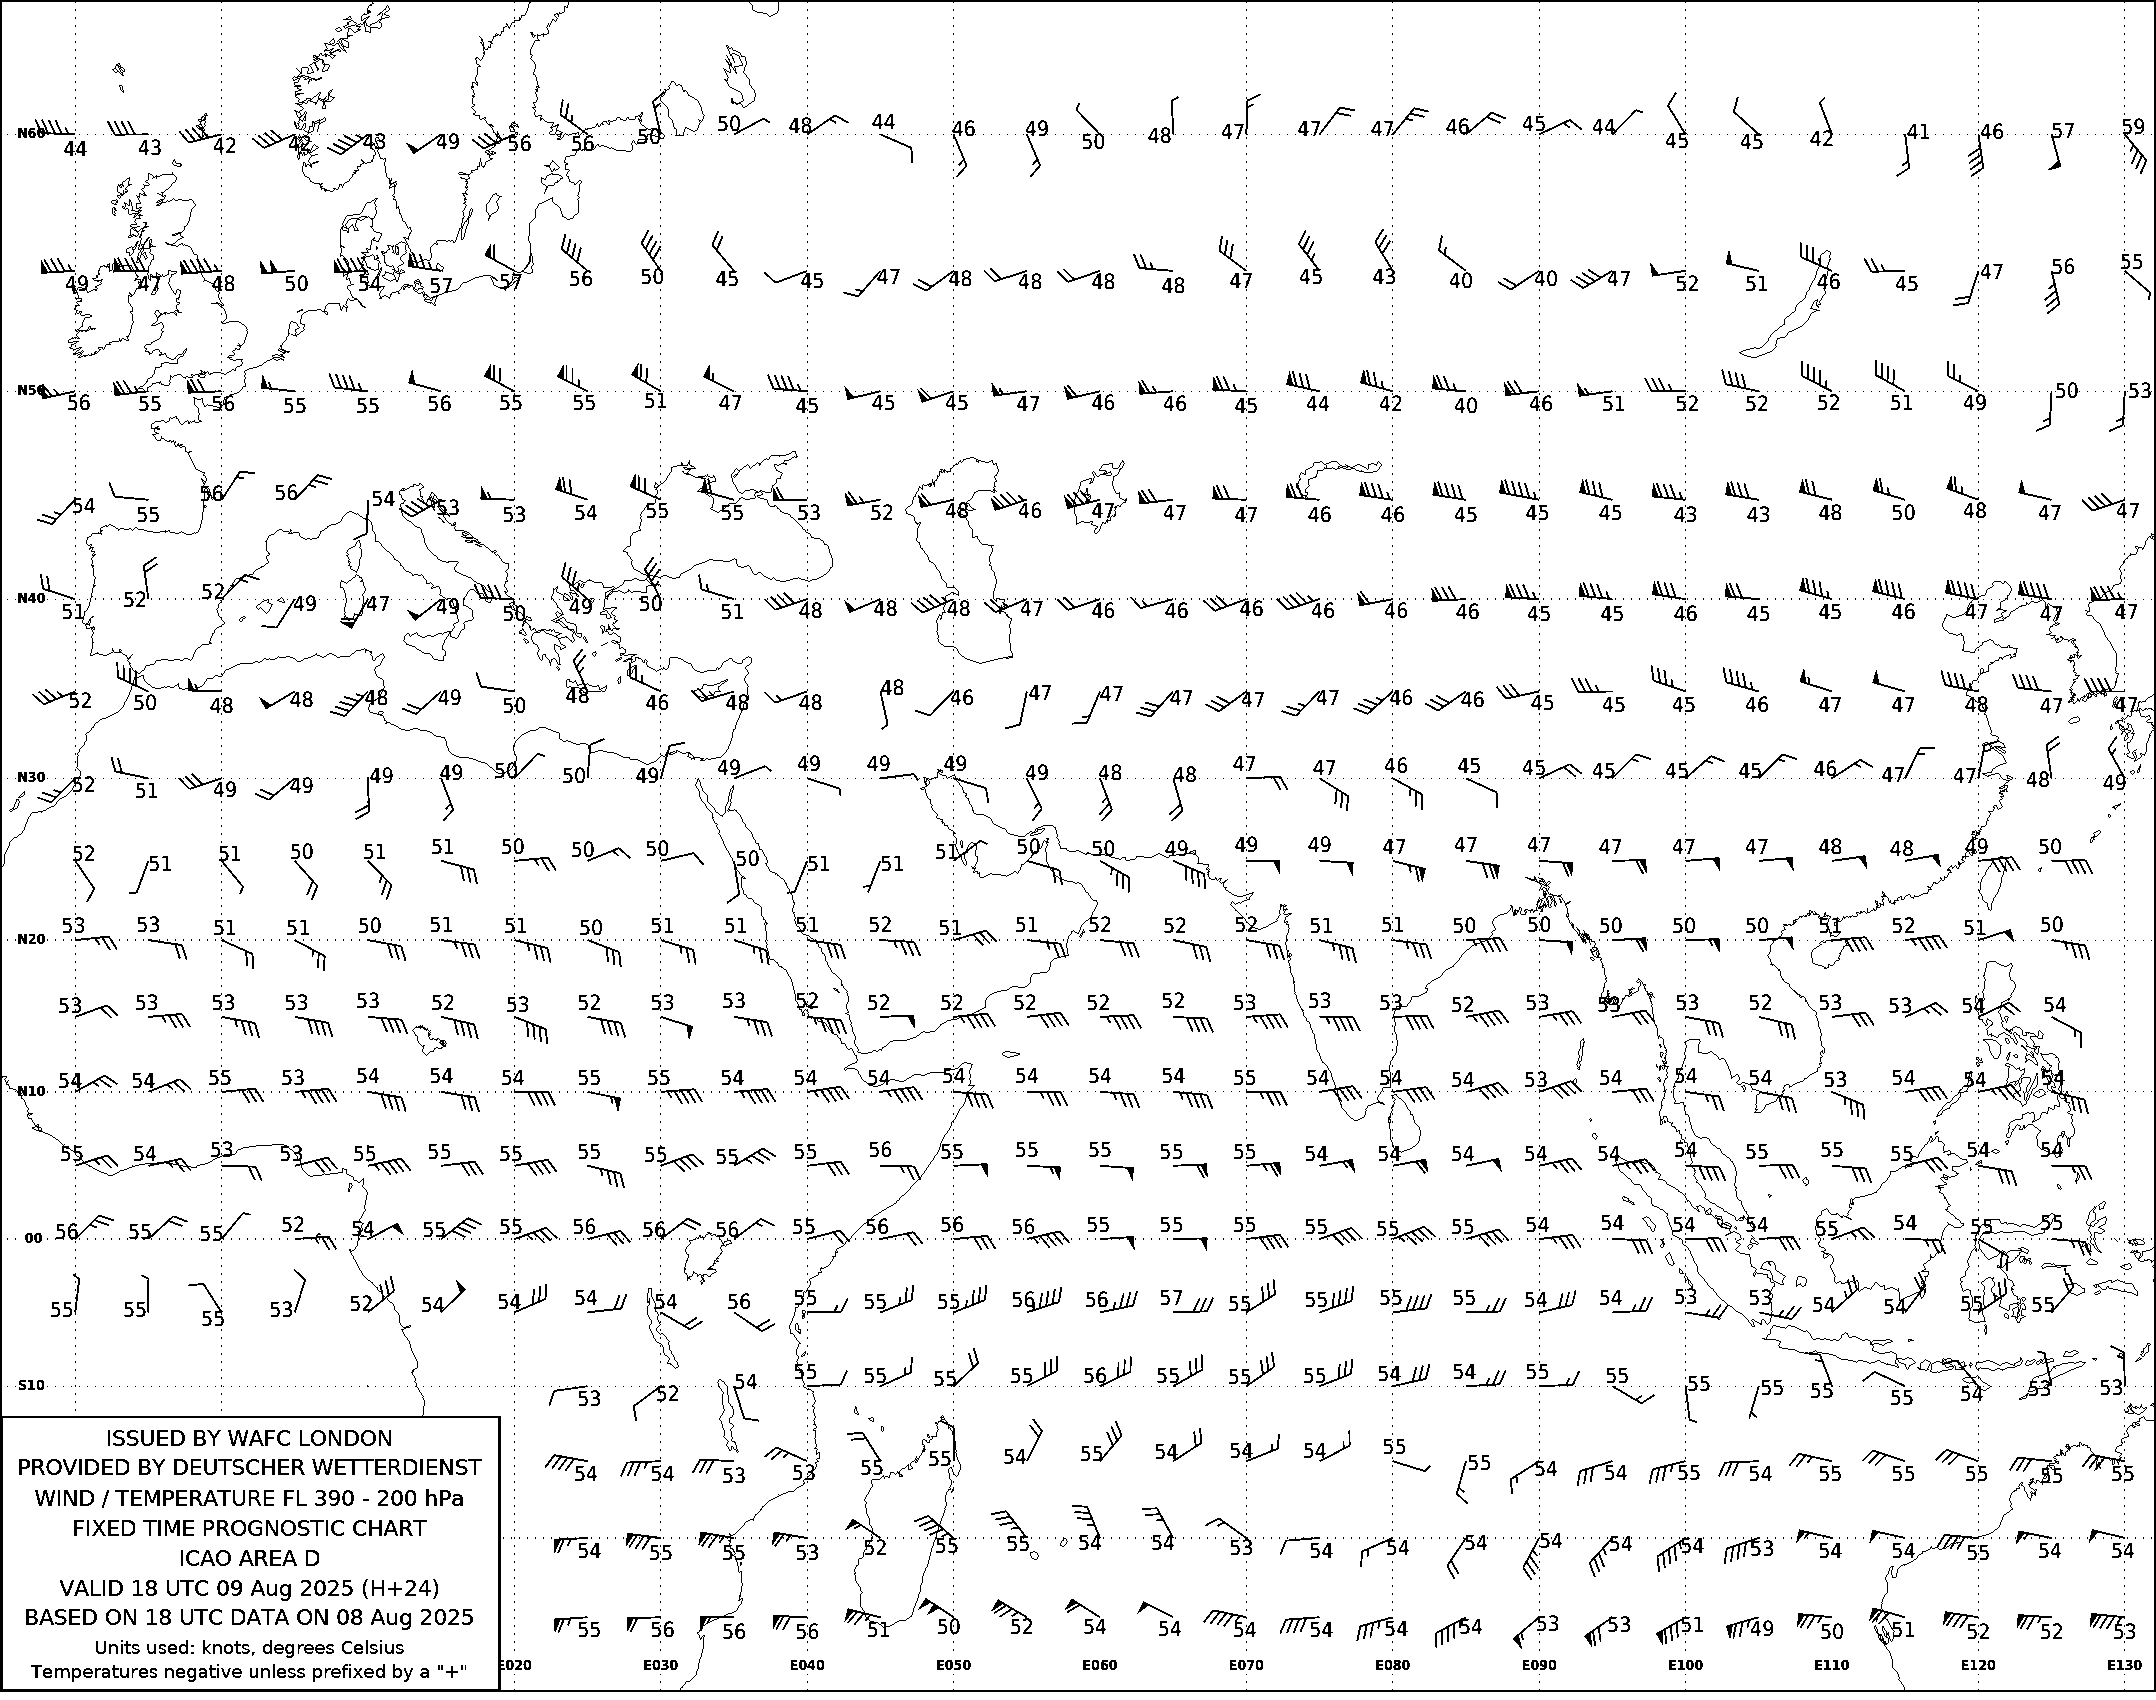 N60 44 43 42 42 43 49 56 56 50 50 48 44 46 49 50 48 47 47 47 46 45 44 45 45 42 41 46 57 59
49 47 48 50 54 57 57 56 50 45 45 47 48 48 48 48 47 45 43 40 40 47 52 51 46 45 47 56 55
N50 56 55 56 55 55 56 55 55 51 47 45 45 45 47 46 46 45 44 42 40 46 51 52 52 52 51 49 50 53
54 55 56 56 54 53 53 54 55 55 53 52 48 46 47 47 47 46 46 45 45 45 43 43 48 50 48 47 47
N40 51 52 52 49 47 49 50 49 50 51 48 48 48 47 46 46 46 46 46 46 45 45 46 45 45 46 47 47 47
52 50 48 48 48 49 50 48 46 48 48 48 46 47 47 47 47 47 46 46 45 45 45 46 47 47 48 47 47
N30 52 51 49 49 49 49 50 50 49 49 49 49 49 49 48 48 47 47 46 45 45 45 45 45 46 47 47 48 49
52 51 51 50 51 51 50 50 50 50 51 51 51 50 50 49 49 49 47 47 47 47 47 47 48 48 49 50
N20 53 53 51 51 50 51 51 50 51 51 51 52 51 51 52 52 52 51 51 50 50 50 50 50 51 52 51 50
53 53 53 53 53 52 53 52 53 53 52 52 52 52 52 52 53 53 53 52 53 53 53 52 53 53 54 54
N10 54 54 55 53 54 54 54 55 55 54 54 54 54 54 54 54 55 54 54 54 53 54 54 54 53 54 54 54
55 54 53 53 55 55 55 55 55 55 55 56 55 55 55 55 55 54 54 54 54 54 54 55 55 55 54 54
00 56 55 55 52 54 55 55 56 56 56 55 56 56 56 55 55 55 55 55 55 54 54 54 54 55 54 55 55
55 55 55 53 52 54 54 54 54 56 55 55 55 56 56 57 55 55 55 55 54 54 53 53 54 54 55 55
S10 53 52 54 55 55 55 55 56 55 55 55 54 54 55 55 55 55 55 55 54 53 53
54 54 53 53 55 55 54 55 54 54 54 55 55 54 54 55 54 55 55 55 55 55
54 55 55 53 52 55 55 54 54 53 54 54 54 54 54 54 53 54 54 55 54 54
55 56 56 56 51 50 52 54 54 54 54 54 54 53 53 51 49 50 51 52 52 53
E020 E030 E040 E050 E060 E070 E080 E090 E100 E110 E120 E130
ISSUED BY WAFC LONDON
PROVIDED BY DEUTSCHER WETTERDIENST
WIND / TEMPERATURE FL 390 - 200 hPa
FIXED TIME PROGNOSTIC CHART
ICAO AREA D
VALID 18 UTC 09 Aug 2025 (H+24)
BASED ON 18 UTC DATA ON 08 Aug 2025
Units used: knots, degrees Celsius
Temperatures negative unless prefixed by a "+"